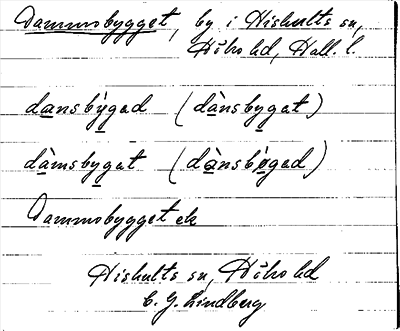 Dammsbygget, by i Hishults sn,
Höks hd, Hall. l.
dansbỳgad (dànsbygat)
dàmsbygat (dànsbø̀gad)
Dammsbygget ek
Hishults sn, Höks hd
C. G. Lindberg